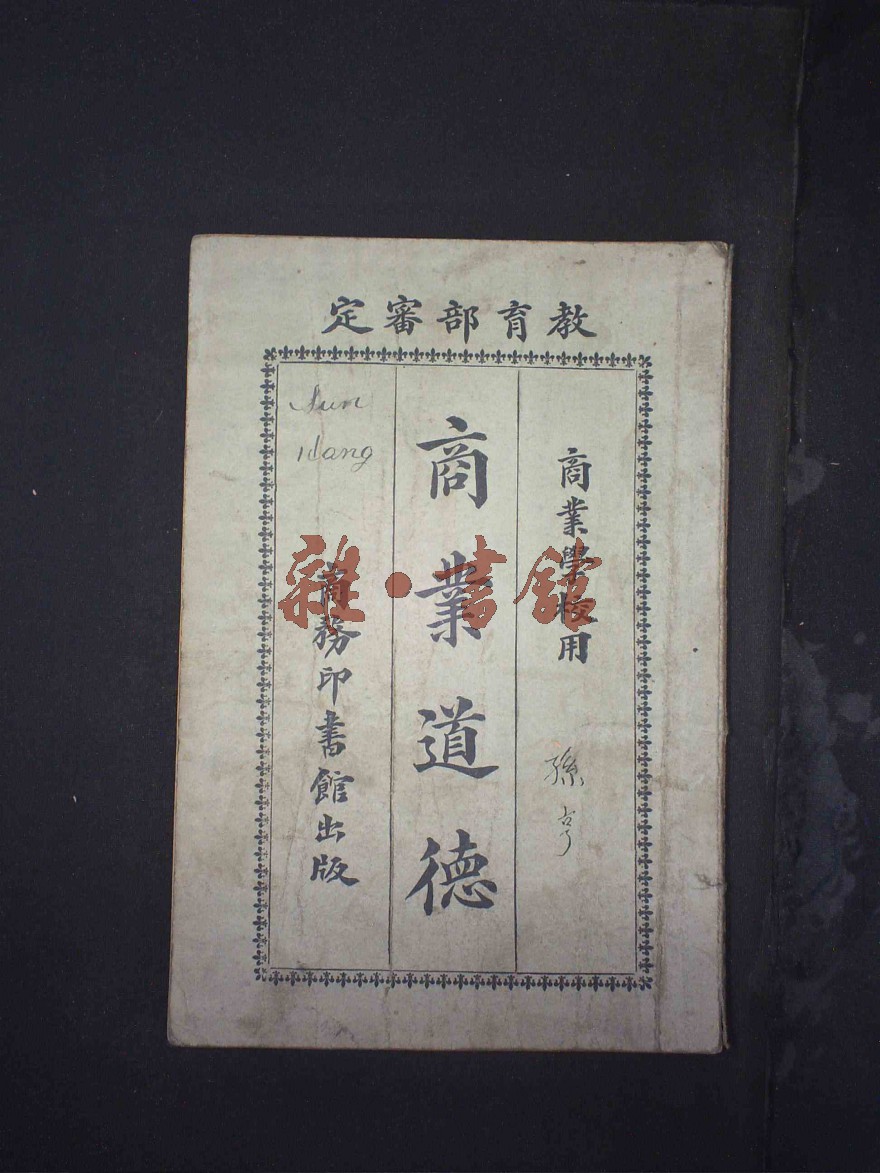 教育部審定
商業學校用
孫亨
商業道德
Sun
商務印書館出版
雜·書館